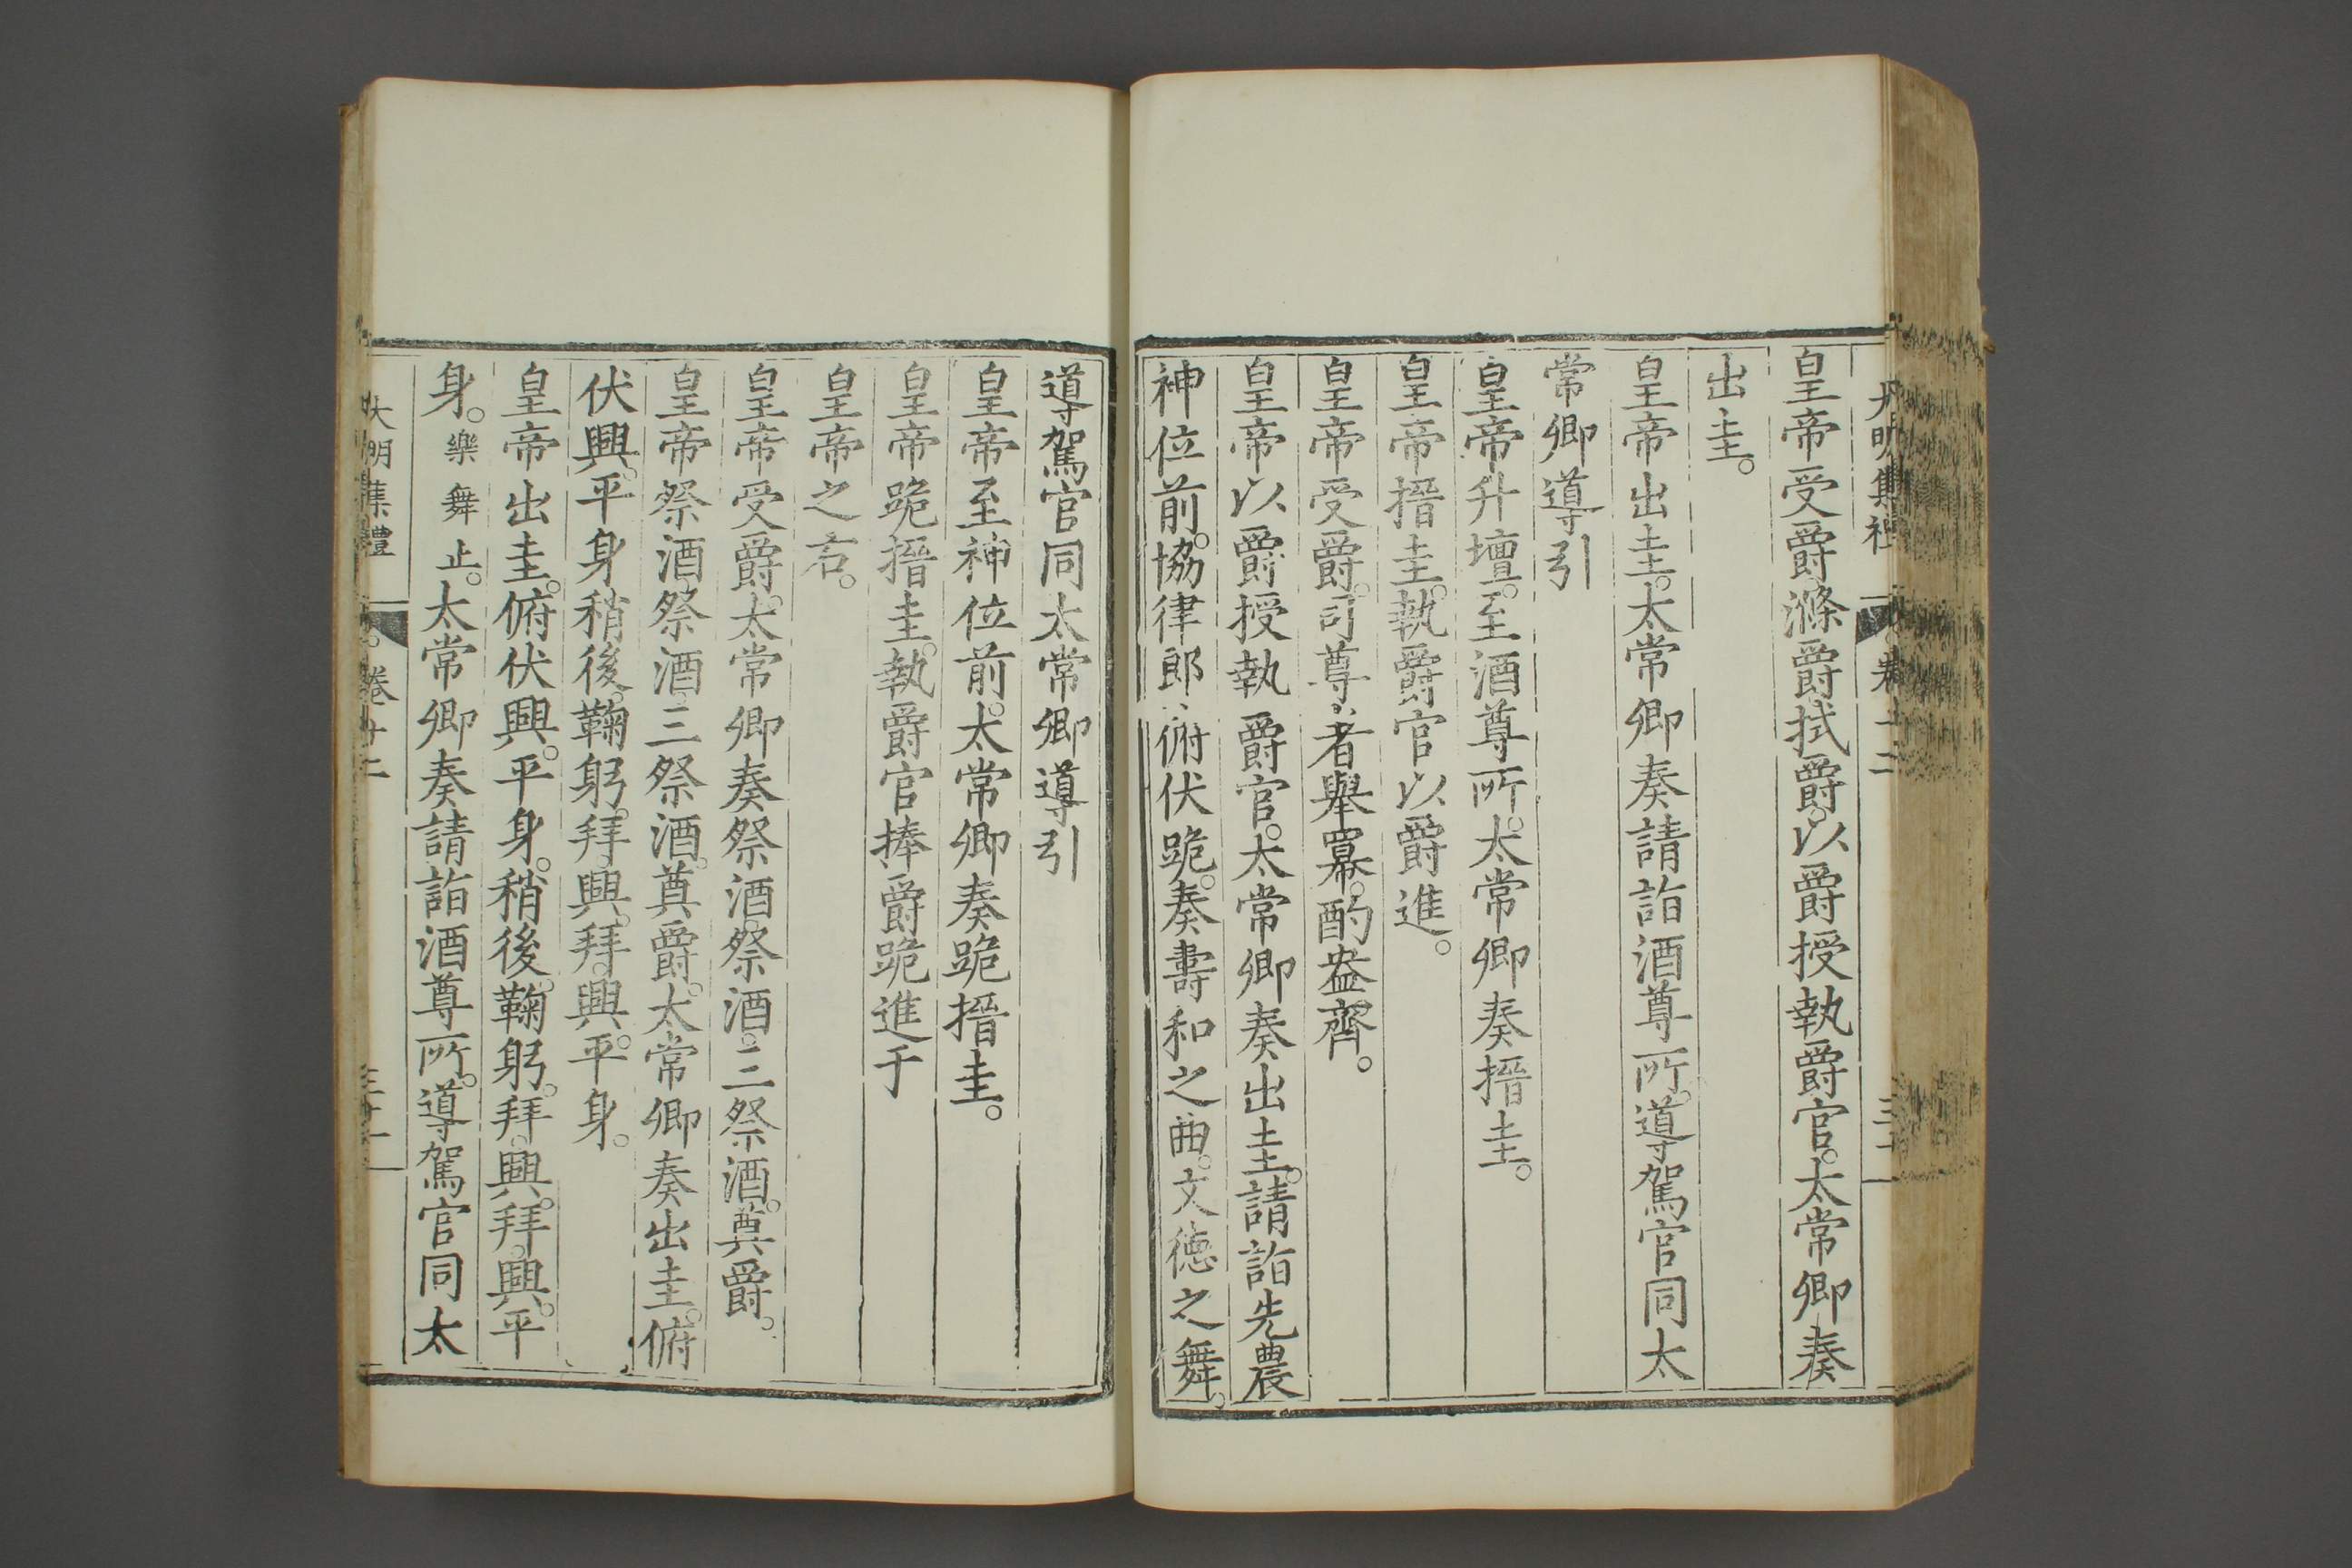 大明集禮 卷十二 三十
皇帝受爵滌爵拭爵。以爵授執爵官。太常卿奏
出圭。
皇帝出圭。太常卿奏請詣酒尊所。導駕官同太
常卿導引
皇帝升壇。至酒尊所。太常卿奏搢圭。
皇帝搢圭。執爵官以爵進。
皇帝受爵。司尊者舉羃。酌盎齊。
皇帝以爵授執爵官。太常卿奏出圭。請詣先農
神位前。協律郎俯伏跪。奏壽和之曲。文德之舞。
導駕官同太常卿導引
皇帝至神位前。太常卿奏跪搢圭。
皇帝跪搢圭。執爵官捧爵跪進于
皇帝之右。
皇帝受爵。太常卿奏祭酒。祭酒。三祭酒。奠爵。
皇帝祭酒。祭酒。三祭酒。奠爵。太常卿奏出圭。俯
伏興。平身稍後。鞠躬。拜。興。拜。興。平身。
皇帝出圭。俯伏興。平身。稍後。鞠躬。拜。興。拜。興。平
身。樂舞止。太常卿奏請詣酒尊所。導駕官同太
大明集禮 卷十二 三十一